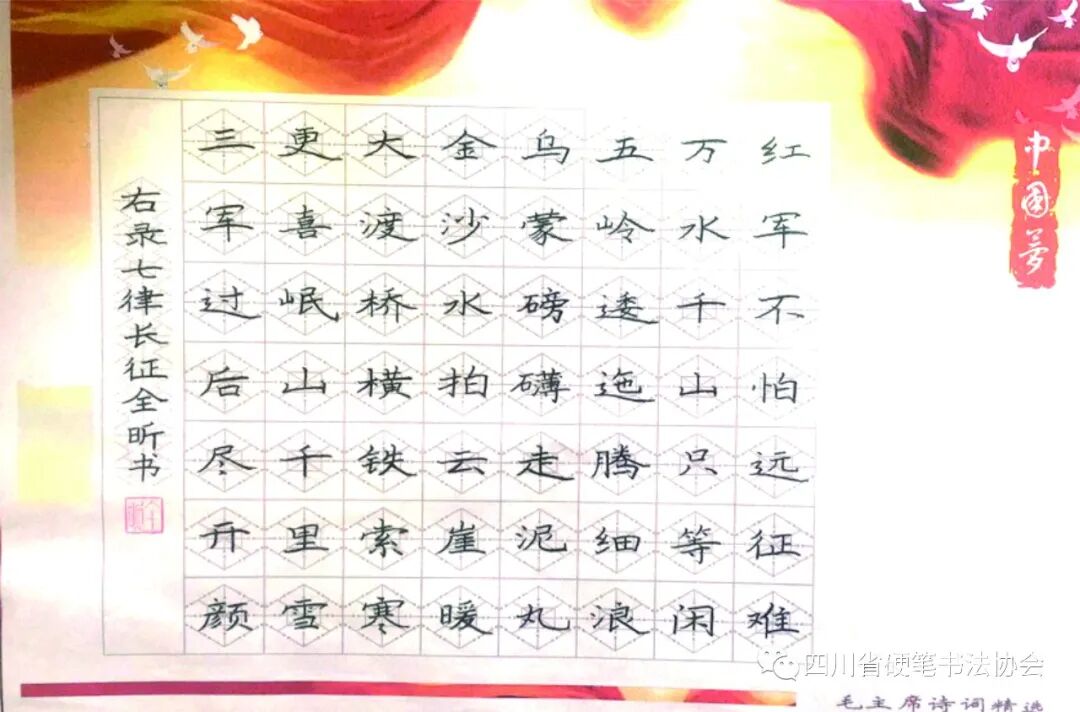 红军不怕远征难
万水千山只等闲
五岭逶迤腾细浪
乌蒙磅礴走泥丸
金沙水拍云崖暖
大渡桥横铁索寒
更喜岷山千里雪
三军过后尽开颜
右录七律长征全昕书
中国梦
四川省硬笔书法协会
毛主席诗词精选